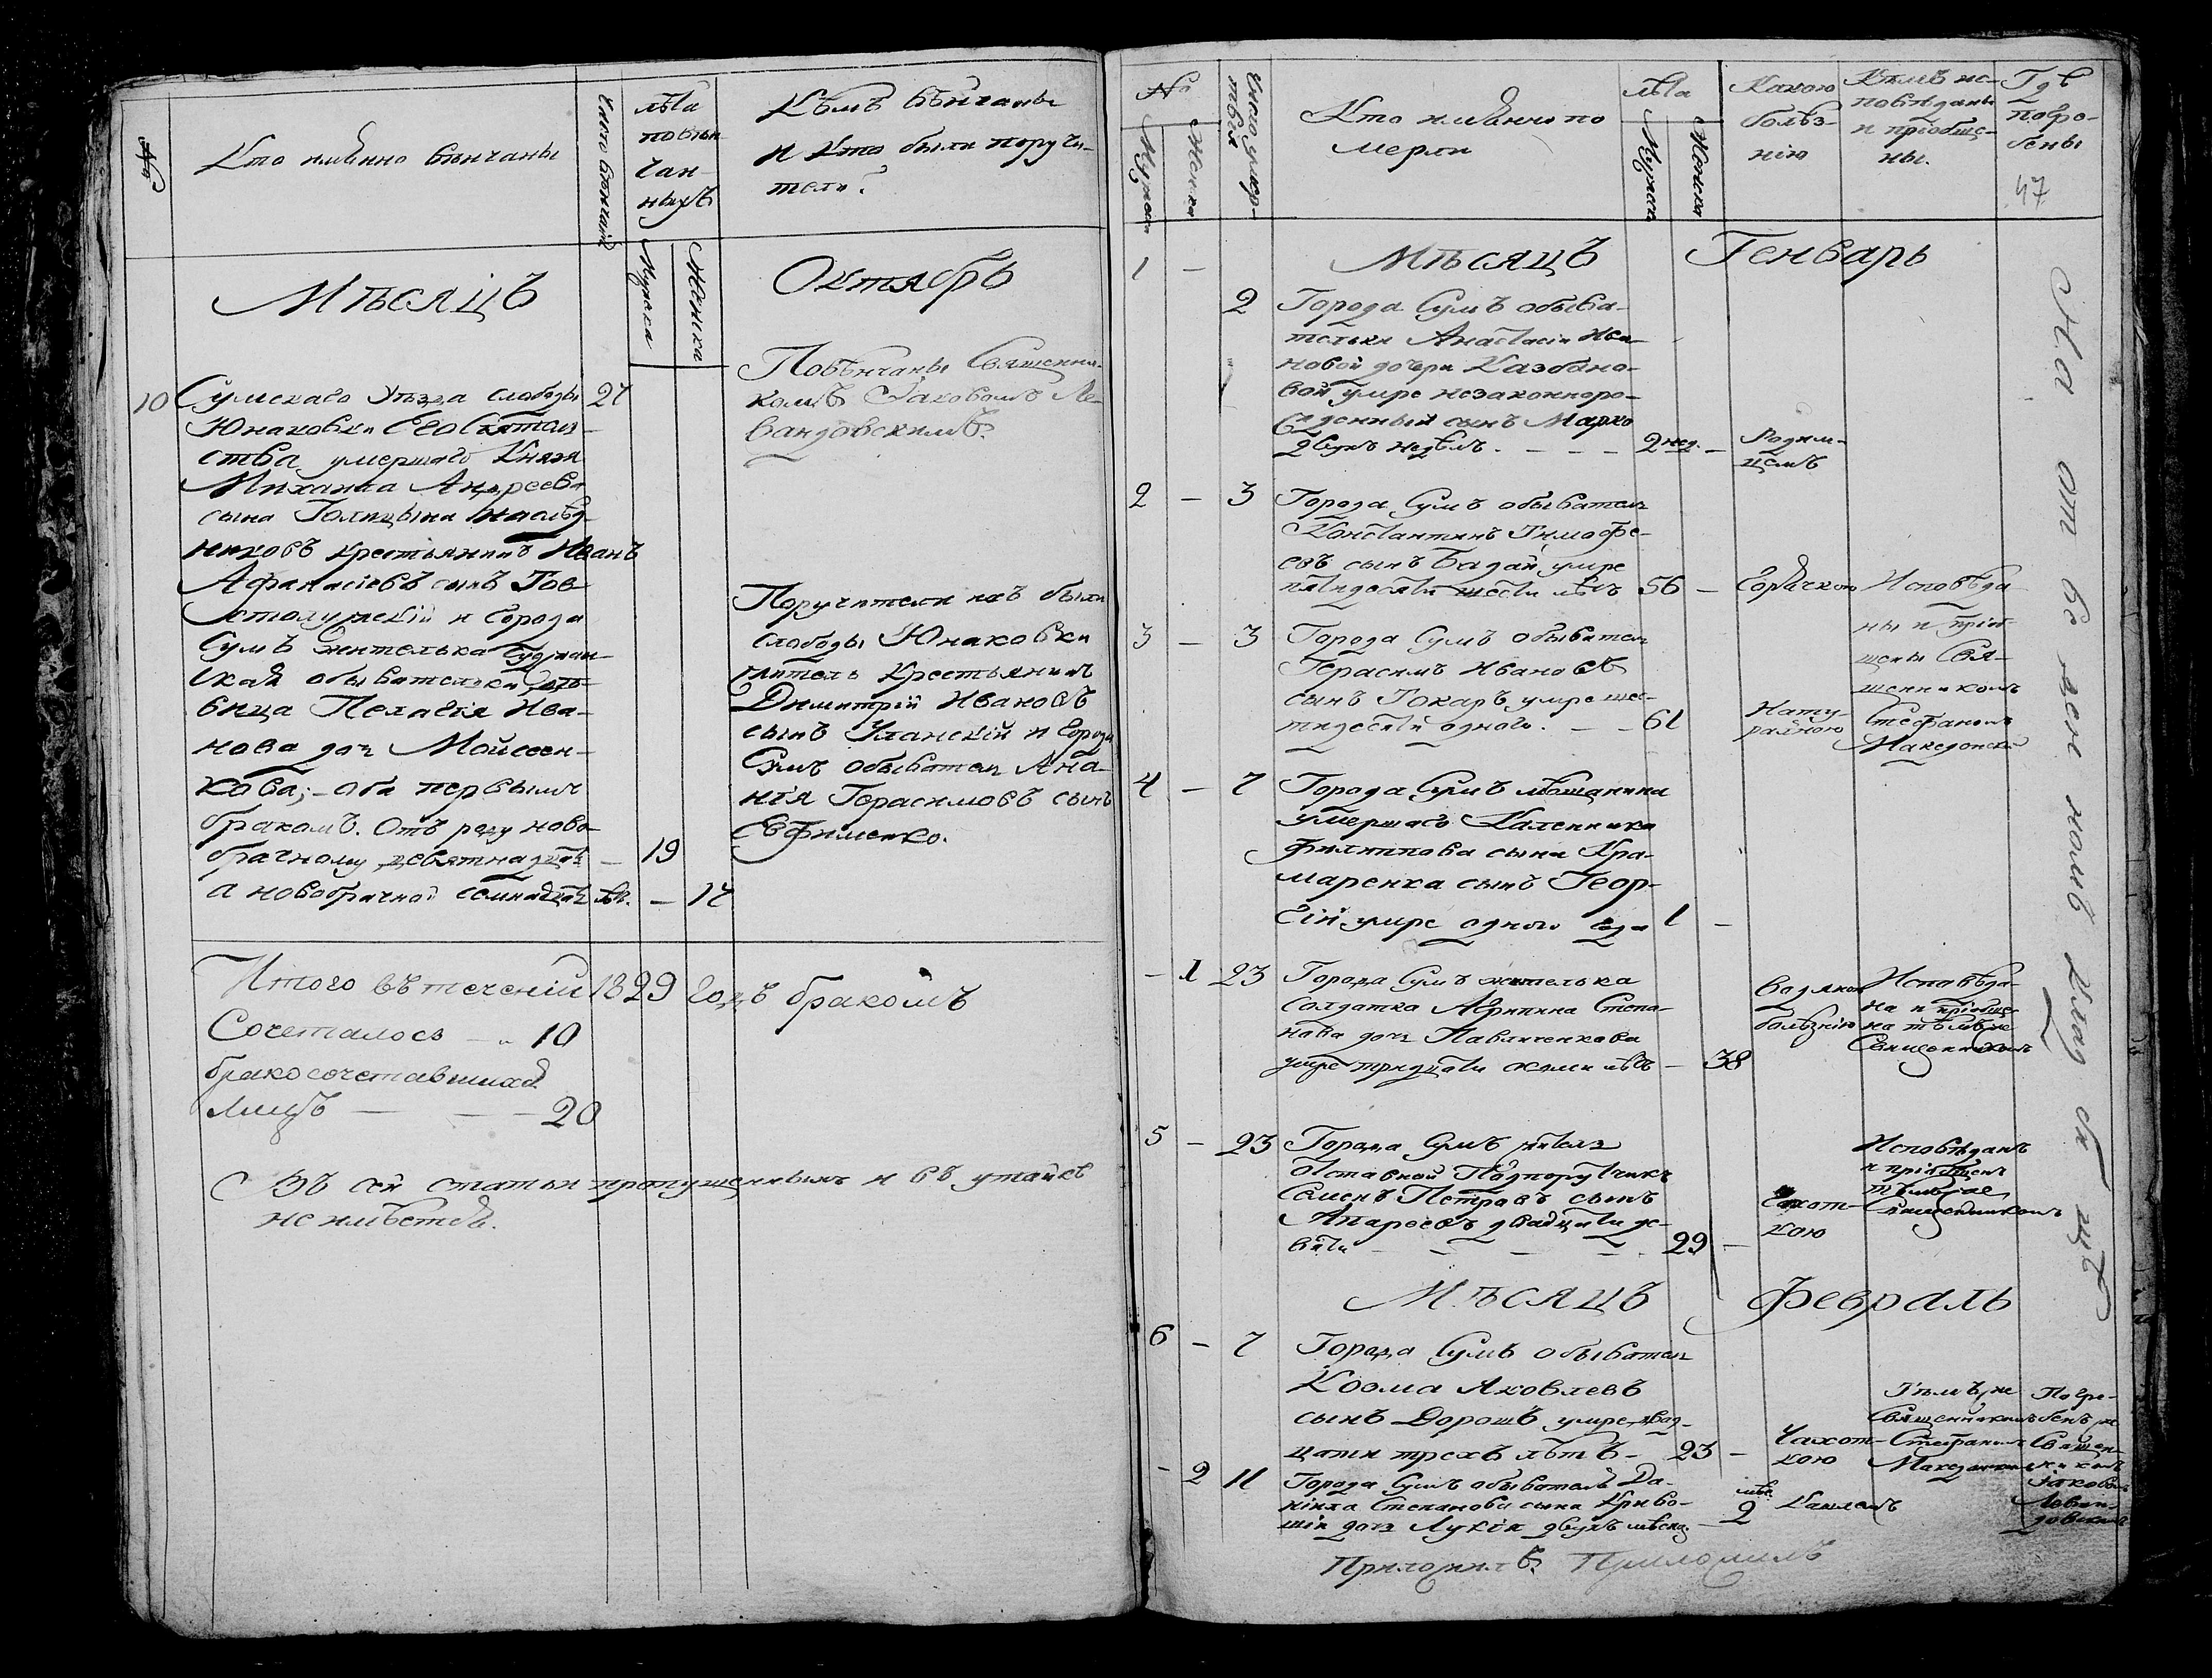 №
Кто имянно венчаны
Число венчанія
лѣта
повѣн
чан-
ныхъ
Мужска
Женска
Кѣмъ венчаны
и кто были поручи-
тели?
Мѣсяцъ
Октябрь
10
Сумскаго Уѣзда слободы
27
Юнаковки
ства умершаго Князя
Михаила Андреева
сына Голицына наслѣд-
никовъ крестьянинъ Иванъ
Афанасіевъ сынъ
и города
Сумъ жителька
обывательки дѣ-
вица Пелагія Ива-
нова дочь Мойсеен-
кова; оба первымъ
бракомъ. Отъ роду ново-
брачному девятнадцать
— 19
а новобрачной семнадцать лѣ.
— 17
Повѣнчаны Священни-
комъ Іаковомъ Ле-
вандовскимъ.
Поручители ихъ были
слободы Юнаковки
житель крестьянинъ
Димитрій Ивановъ
сынъ Уланскій и города
Сумъ обыватель Ана-
нія Герасимовъ сынъ
Ефименко.
Итого въ теченіи 1829 годъ бракомъ
Сочеталось — 10
бракосочетавшихся
Лицъ — — 20
Въ сей статьи пропущенныхъ и въ утайкѣ
не имѣется.
№
Мужеск
Женска
Число умер-
твія
Кто имянно по
мерли
лѣта
Мужеск
Женска
Какою
болѣз-
нію
Кѣмъ ис-
повѣданы
и пріобще-
ны.
Гдѣ
погре-
бены
47
Мѣсяцъ
Генварь
1 —
2
Города Сумъ обыва-
тельки Анастасіи Ива-
новой дочери Казбано-
вой умре незаконноро-
жденный сынъ Марко
двухъ недѣль. — — —
2 нед. —
Родим-
цемъ
2 — 3
Города Сумъ обыватель
Константинъ Тимофе-
евъ сынъ Бадай умре
пятидесяти шести лѣтъ
56 —
Горячкою
Исповѣда
ны и пріоб
щены Свя-
щенникомъ
Стефаномъ
Македонск
3 — 3
Города Сумъ обыватель
Герасимъ Ивановъ
сынъ Токарь умре шес-
тидесяти одного. — — 61
Нату-
ральною
4 — 7
Города Сумъ мѣщанина
умершаго Каленника
Филиппова сына Кра-
маренка сынъ Геор-
гій умре одного года 1 —
— 1 23
Города Сумъ жителька
солдатка Агрипина Степа-
нова дочь Павличенкова
умре тридцати осьми лѣтъ — 38
Водяною
болѣзнію
Исповѣда-
на и пріобще-
на тѣмъ же
Священникомъ
5 — 23
Города Сумъ житель
отставной Подпоручикъ
Семенъ Петровъ сынъ
Андреевъ двадцати де-
вяти — — — — 29 —
Чахот-
кою
Исповѣданъ
и пріобщенъ
тѣмъ же
Священникомъ
Мѣсяцъ
Февраль
6 — 7
Города Сумъ обыватель
Козма Яковлевъ
сынъ Дорошъ умре двад-
цати трехъ лѣтъ — 23 —
Чахот-
кою
Тѣмъ же
Священникомъ
Стефаномъ
Македонским
Погре-
бенъ же
Священ-
никомъ
Іаковомъ
Леван-
довским
— 2 11
Города Сумъ обывателя Да-
ніила Степанова сына Криво-
шіи дочь Лукія двухъ мѣсяц.
мѣс.
2
Кашлемъ
Приложилъ. Приложилъ
На от ве зен номъ Клад би щѣ